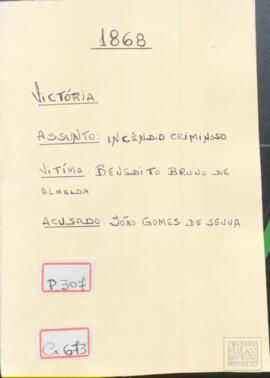 1868
VICTÓRIA
ASSUNTO: INCÊNDIO CRIMINOSO
VITÍMA: BENEDITO BRUNO DE
ALMEIDA
ACUSADO: JOÃO GOMES DE SENNA.
P.307
Cx 673